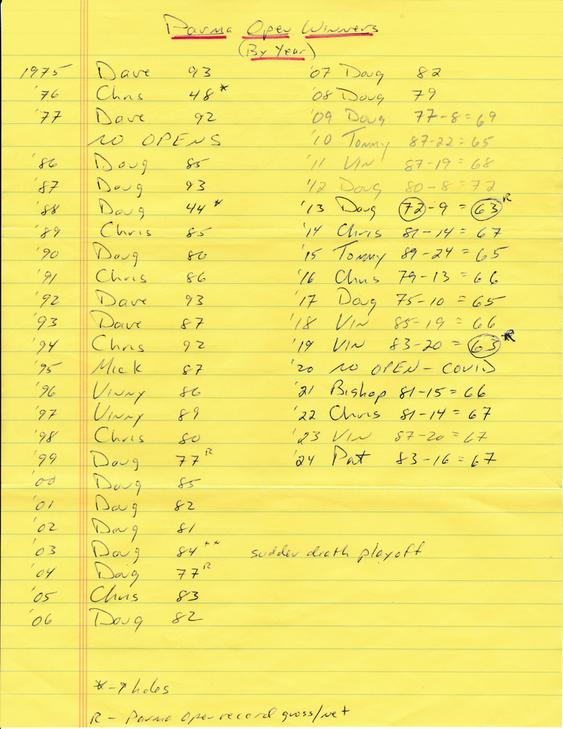 Parma Open Winners
(By Year)
1975 Dave 93
'76 Chris 48*
'77 Dave 92
NO OPENS
'86 Doug 85
'87 Doug 93
'88 Doug 44*
'89 Chris 85
'90 Doug 86
'91 Chris 86
'92 Dave 93
'93 Dave 87
'94 Chris 92
'95 Mick 87
'96 Vinny 86
'97 Vinny 89
'98 Chris 80
'99 Doug 77R
'00 Doug 85
'01 Doug 82
'02 Doug 81
'03 Doug 84** sudden death playoff
'04 Doug 77R
'05 Chris 83
'06 Doug 82
'07 Doug 82
'08 Doug 79
'09 Doug 77-8=69
'10 Tommy 87-22=65
'11 VIN 87-19=68
'12 Doug 80-8=72
'13 Doug 72-9=63R
'14 Chris 81-14=67
'15 Tommy 89-24=65
'16 Chris 79-13=66
'17 Doug 75-10=65
'18 VIN 85-19=66
'19 VIN 83-20=63*R
'20 NO OPEN - COVID
'21 Bishop 81-15=66
'22 Chris 81-14=67
'23 VIN 87-20=67
'24 Pat 83-16=67
*-9 holes
R - Parma Open record gross/net